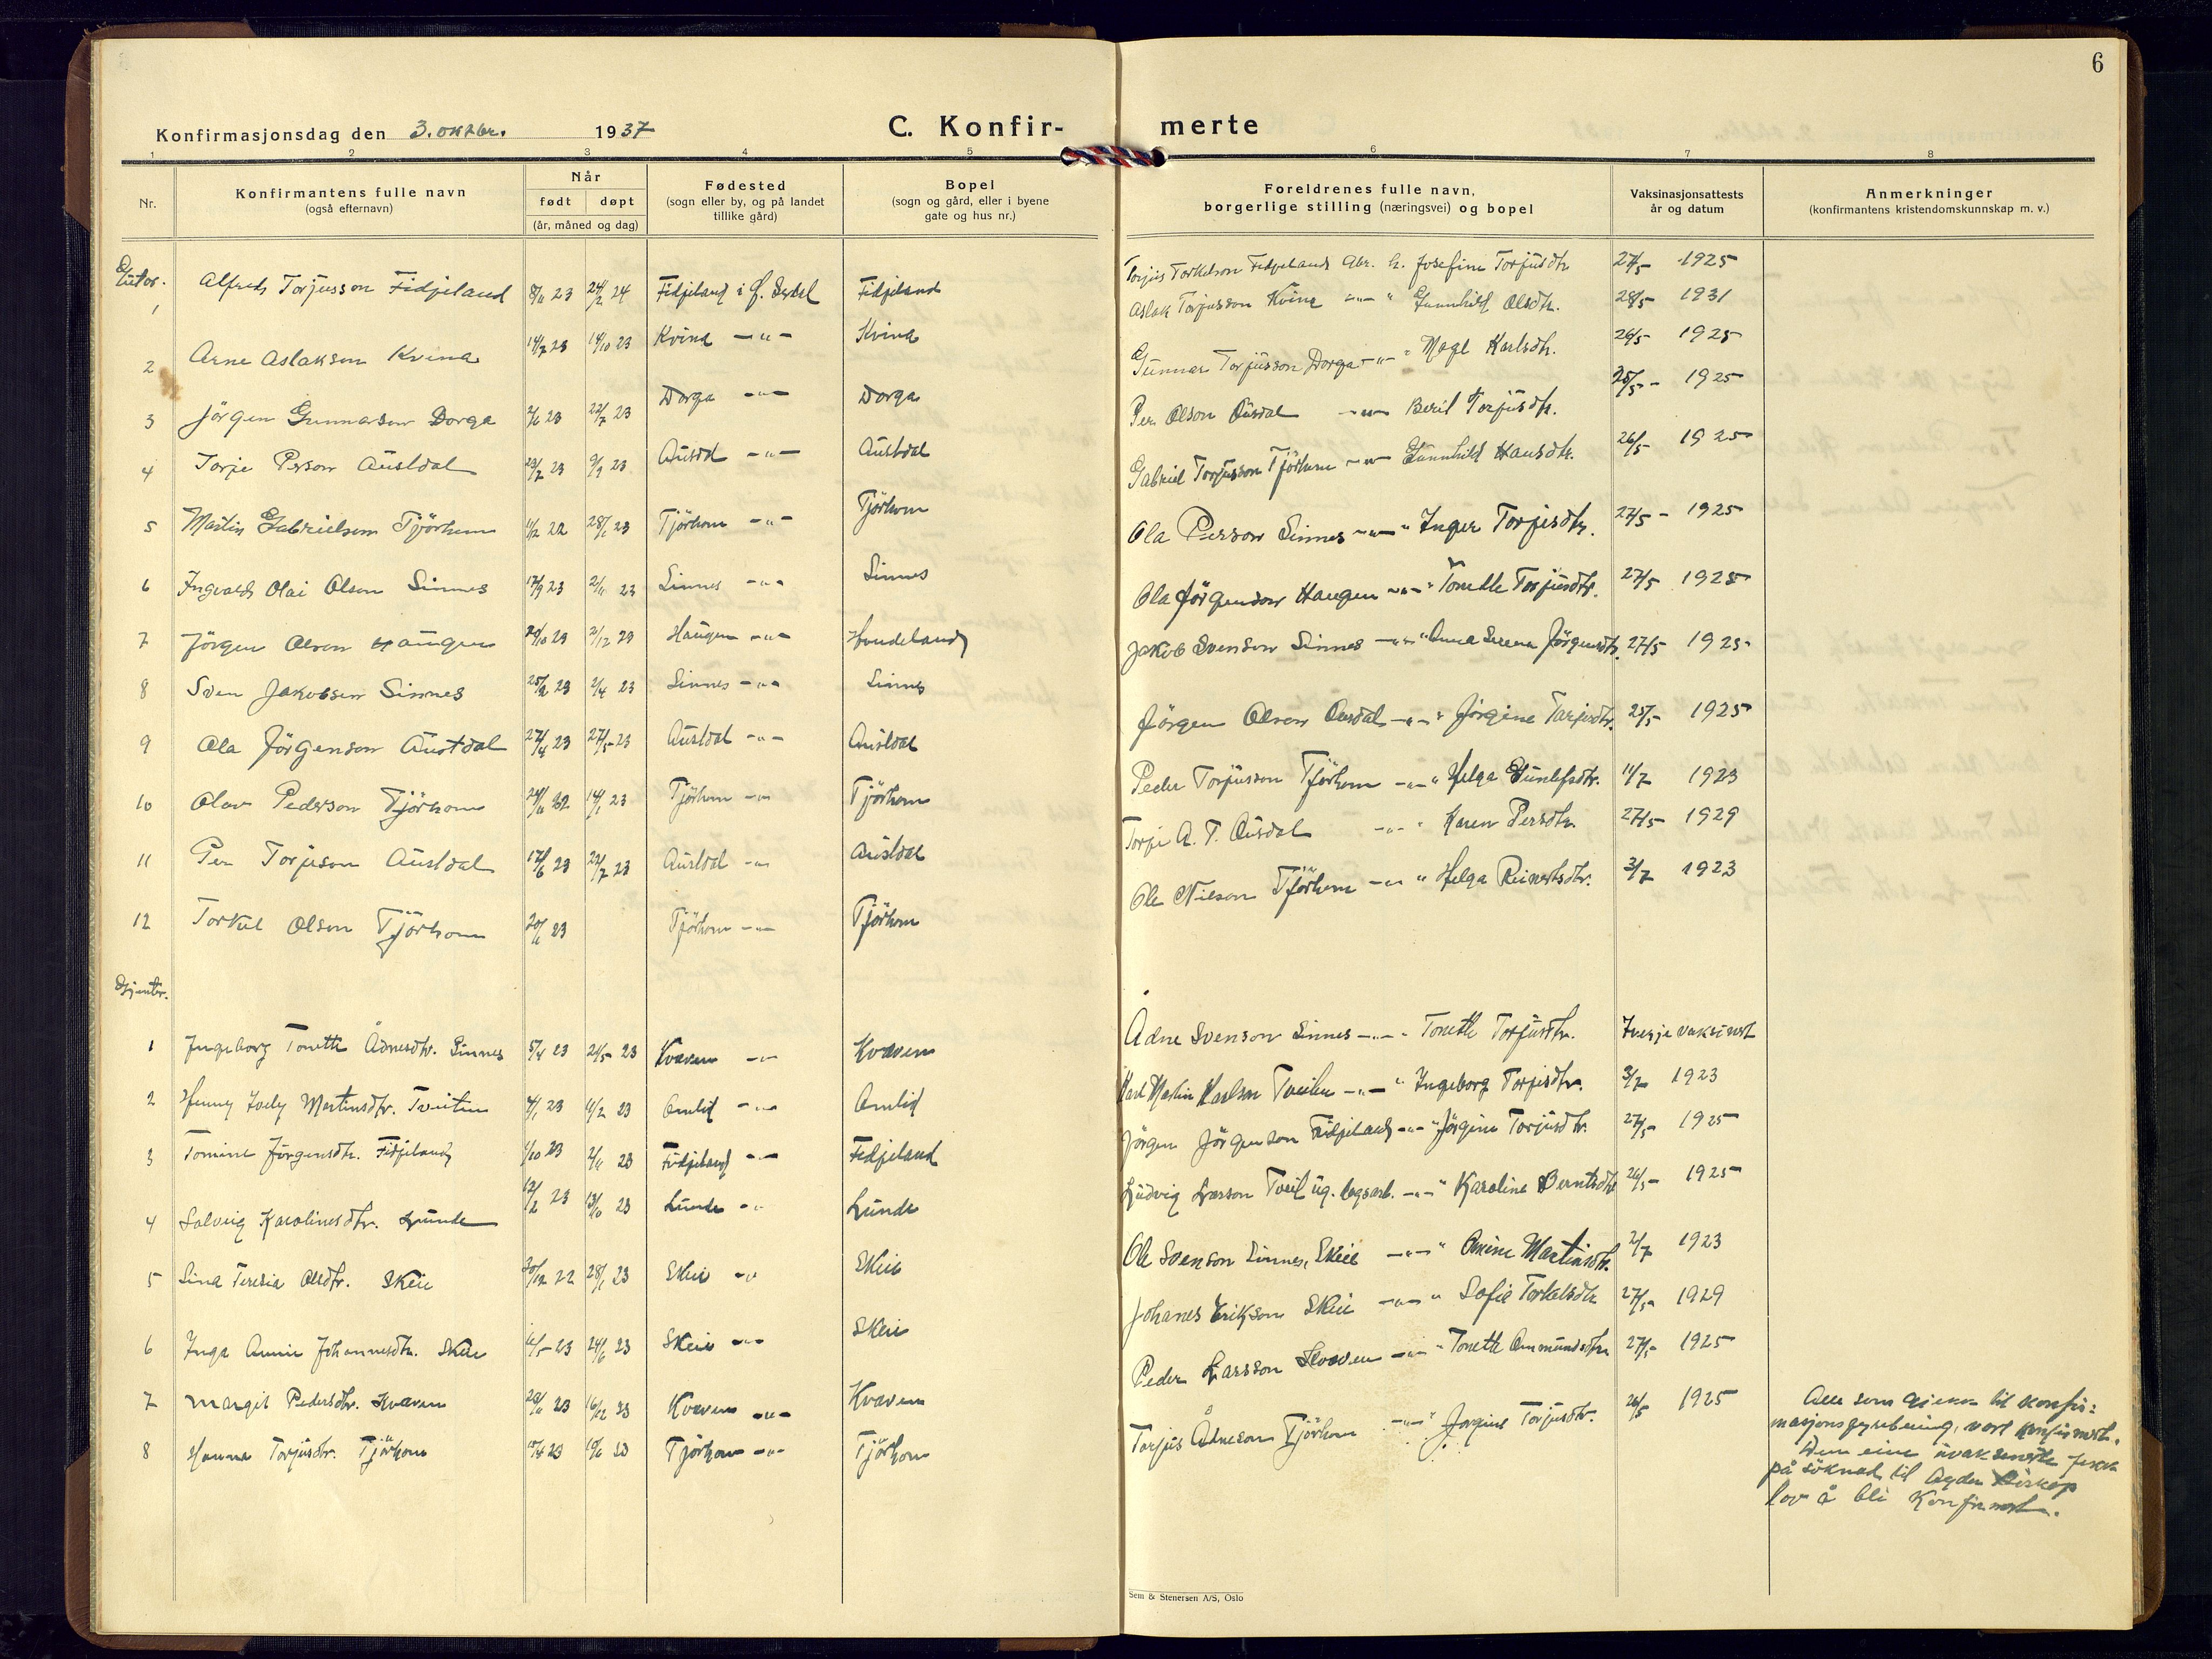 6
Konfirmasjonsdag den 3. oktbr. 1937
C. Konfir- merte
1 2 3 4 5 6 7 8
Nr.
Konfirmantens fulle navn
(også efternavn)
Når
født døpt
(år, måned og dag)
Fødested
(sogn eller by, og på landet
tillike gård)
Bopel
(sogn og gård, eller i byene
gate og hus nr.)
Foreldrenes fulle navn,
borgerlige stilling (næringsvei) og bopel
Vaksinasjonsattests
år og datum
Anmerkninger
(konfirmantens kristendomskunnskap m. v.)
Gutar.
1 Alfred Torjusson Fidjeland 8/11 23 24/2 24 Fidjeland i Ø. Sirdal Fidjeland Torjus Torkelson Fidjeland Gbr. h. Josefine Torjusdtr 27/5 1925
2 Arne Aslakson Kvina 14/7 23 14/10 23 Kvina -"- Kvina Aslak Torjusson Kvina -"- " Gunnhild Olsdtr. 28/5 1931
3 Jörgen Gunnarson Dorga 2/6 23 22/7 23 Dorga -"- Dorga Gunnar Torjusson Dorga -"- " Magl Karlsdtr. 26/5 1925
4 Torje Person Austdal 23/7 23 9/9 23 Ausdal -"- Austdal Per Olson Ausdal -"- Beril Torjusdtr. 25/5 - 1925
5 Martin Gabrielson Tjörhom 11/12 22 28/1 23 Tjörhom -"- Tjörhom Gabriel Torjusson Tjörhom -"- Gunnhild Hansdtr. 26/5 1925
6 Ingvald Olai Olson Sinnes 17/9 23 2/11 23 Sinnes -"- Sinnes Ola Person Sinnes -"- " Inger Torjesdtr. 27/5 - 1925
7 Jörgen Olson Haugen 23/10 23 2/12 23 Haugen -"- Hondeland Ola Jörgenson Haugen -"- " Tonette Torjusdtr. 27/5 1925
8 Sven Jakobsen Sinnes 25/2 23 2/4 23 Sinnes -"- Sinnes Jakob Svenson Sinnes -"- " Anna Serena Jörgensdtr. 27/5 1925
9 Ola Jörgenson Austdal 27/4 23 27/5 23 Austdal -"- Austdal Jörgen Olson Ausdal -"- " Jörgine Tarjesdtr. 25/5 1925
10 Olav Pederson Tjörhom 24/11 22 14/1 23 Tjörhom -"- Tjörhom Peder Torjusson Tjörhom -"- " Helga Gunlefsdtr. 11/7 1923
11 Per Torjeson Austdal 17/6 23 22/7 23 Austdal -"- Austdal Torje A. T. Ausdal -"- " Karen Persdtr. 27/5 1929
12 Torkel Olson Tjörhom 20/11 23 Tjörhom -"- Tjörhom Ole Nilson Tjörhom -"- " Helga Reinertsdtr. 3/7 1923
Gjenter.
1 Ingeborg Tonette Ådnesdtr. Sinnes 5/4 23 21/5 23 Kvæven -"- Kvæven Ådne Svenson Sinnes -"- " Tonette Torjusdtr. Ikkje vaksinert
2 Henny Joely Martinsdtr. Tveiten 4/1 23 11/2 23 Omlid -"- Omlid Karl Martin Karlson Tveiten -"- " Ingeborg Torjisdtr. 3/7 1923
3 Tomine Jörgensdtr. Fidjeland 1/10 23 2/11 23 Fidjeland -"- Fidjeland Jörgen Jörgenson Fidjeland -"- " Jörgine Torjusdtr. 27/5 1925
4 Solveig Karolinesdtr. Lunde 12/2 23 13/10 23 Lunde -"- Lunde Ludvig Larson Tveit ug. dagsarb. -"- " Karoline Berntsdtr. 26/5 1925
5 Sina Teresia Olsdtr. Skeie 30/12 22 28/1 23 Skeie -"- Skeie Ole Svenson Sinnes, Skeie -"- " Omine Martinsdtr. 2/7 1923
6 Inga Annie Johannesdtr. Skeie 11/5 23 24/6 23 Skeie -"- Skeie Johanes Erikson Skeie -"- " Sofie Torkelsdtr 27/5 1929
7 Margit Pedersdtr. Kvæven 20/11 23 16/12 23 Kvæven -"- Kvæven Peder Larsson Kvæven -"- " Tonette Ommundsdtr. 27/5 1925
8 Hanna Torjusdtr. Tjörhom 15/4 23 10/6 23 Tjörhom -"- Tjörhom Torjus Ådneson Tjörhom -"- " Jorgine Torjusdtr. 26/5 1925
Alle som gjekk til konfir:
masjonsfyrebuing, vart konfirmert.
Den eine uvaksinerte fekk
på söknad til Agder Biskop
lov å bli konfirmert.
Sem & Stenersen A/S, Oslo